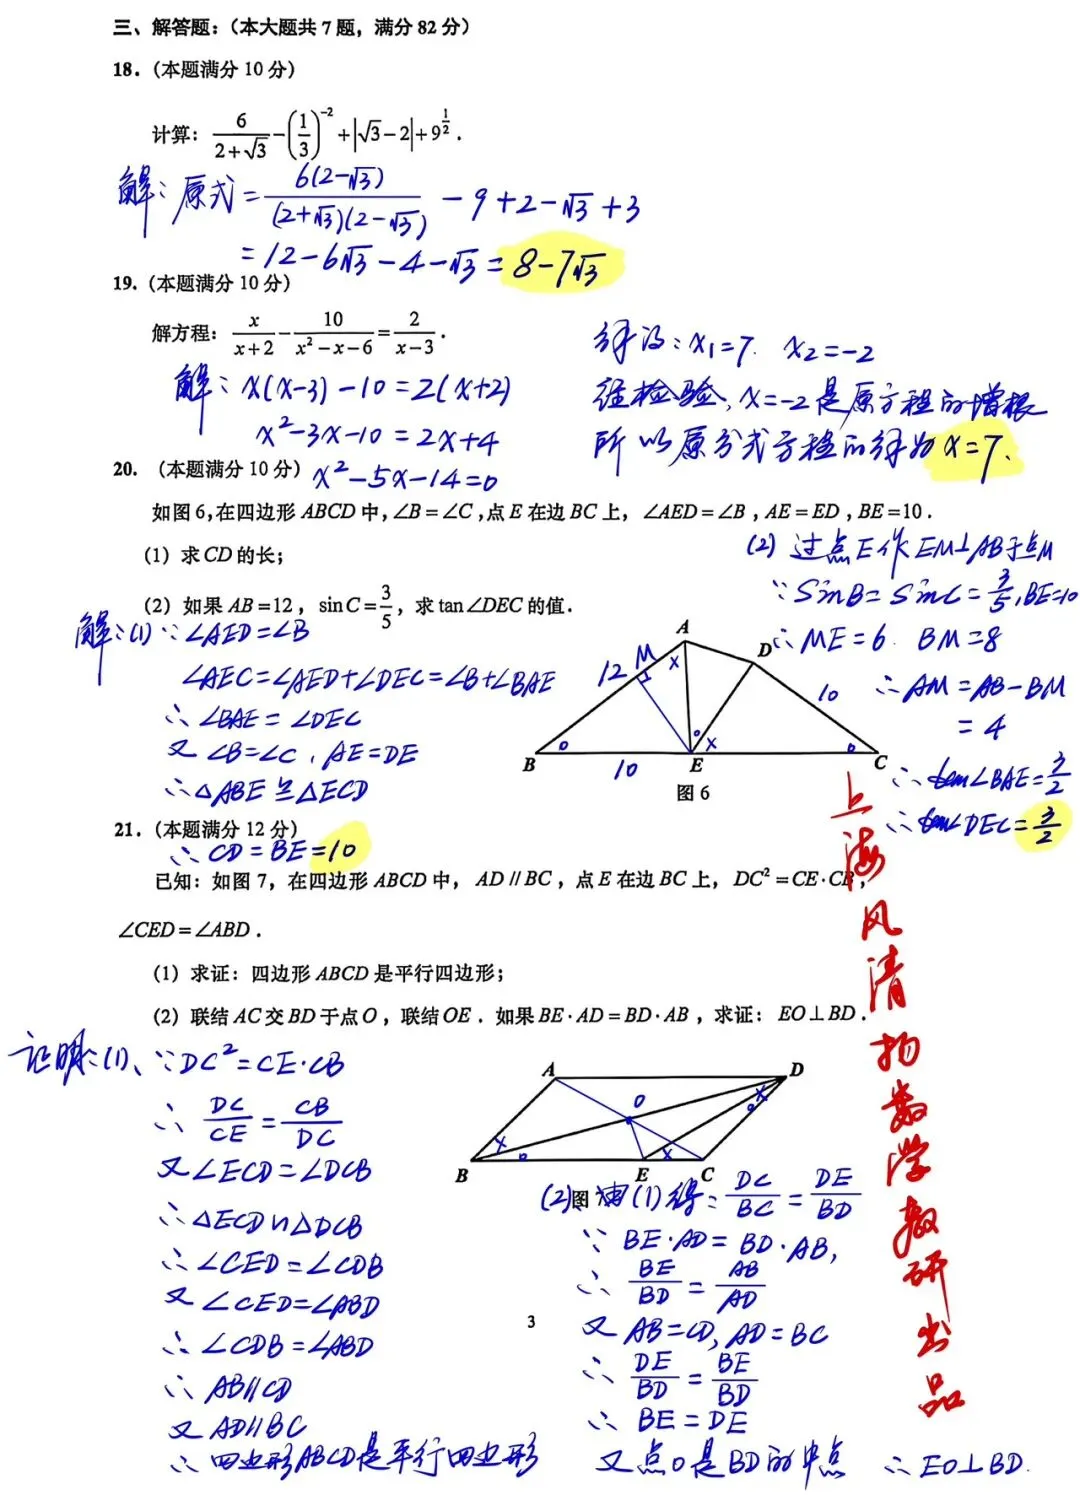 三、解答题：（本大题共 7 题，满分 82 分）
18．（本题满分 10 分）
计算：6/(2+√3) − (1/3)^(−2) + |√3−2| + 9^(1/2)．
解：原式 = 6(2−√3)/((2+√3)(2−√3)) − 9 + 2 − √3 + 3
= 12 − 6√3 − 4 − √3 = 8 − 7√3
19．（本题满分 10 分）
解方程：x/(x+2) − 10/(x²−x−6) = 2/(x−3)．
解：x(x−3) − 10 = 2(x+2)
x²−3x−10 = 2x+4
x²−5x−14=0
解得：x₁=7. x₂=−2
经检验，x=−2是原方程的增根
所以原分式方程的解为 x=7.
20．（本题满分 10 分）
如图 6，在四边形 ABCD 中，∠B=∠C，点 E 在边 BC 上，∠AED=∠B，AE=ED，BE=10．
（1）求 CD 的长；
（2）如果 AB=12，sin C=3/5，求 tan∠DEC 的值．
解：(1) ∵∠AED=∠B
∠AEC=∠AED+∠DEC=∠B+∠BAE
∴∠BAE=∠DEC
又∠B=∠C，AE=DE
∴△ABE≌△ECD
∴CD=BE=10
(2) 过点E作EM⊥AB于点M
∵SinB=SinC=3/5，BE=10
∴ME=6. BM=8
∴AM=AB−BM
=4
∴tan∠BAE=3/2
∴tan∠DEC=3/2
A
D
M
12
10
x
x
B
10
E
C
图 6
21．（本题满分 12 分）
已知：如图 7，在四边形 ABCD 中，AD // BC，点 E 在边 BC 上，DC²=CE·CB，
∠CED=∠ABD．
（1）求证：四边形 ABCD 是平行四边形；
（2）联结 AC 交 BD 于点 O，联结 OE．如果 BE·AD=BD·AB，求证：EO⊥BD．
证明：(1)、∵DC²=CE·CB
∴DC/CE=CB/DC
又∠ECD=∠DCB
∴△ECD∽△DCB
∴∠CED=∠CDB
又∠CED=∠ABD
∴∠CDB=∠ABD
∴AB//CD
又AD//BC
∴四边形ABCD是平行四边形
A
D
O
x
x
x
B
E
C
图
(2) 由(1)得：DC/BC=DE/BD
∵BE·AD=BD·AB，
∴BE/BD=AB/AD
又AB=CD，AD=BC
∴DE/BD=BE/BD
∴BE=DE
又点O是BD的中点 ∴EO⊥BD.
3
上海风清扬数学教研出品